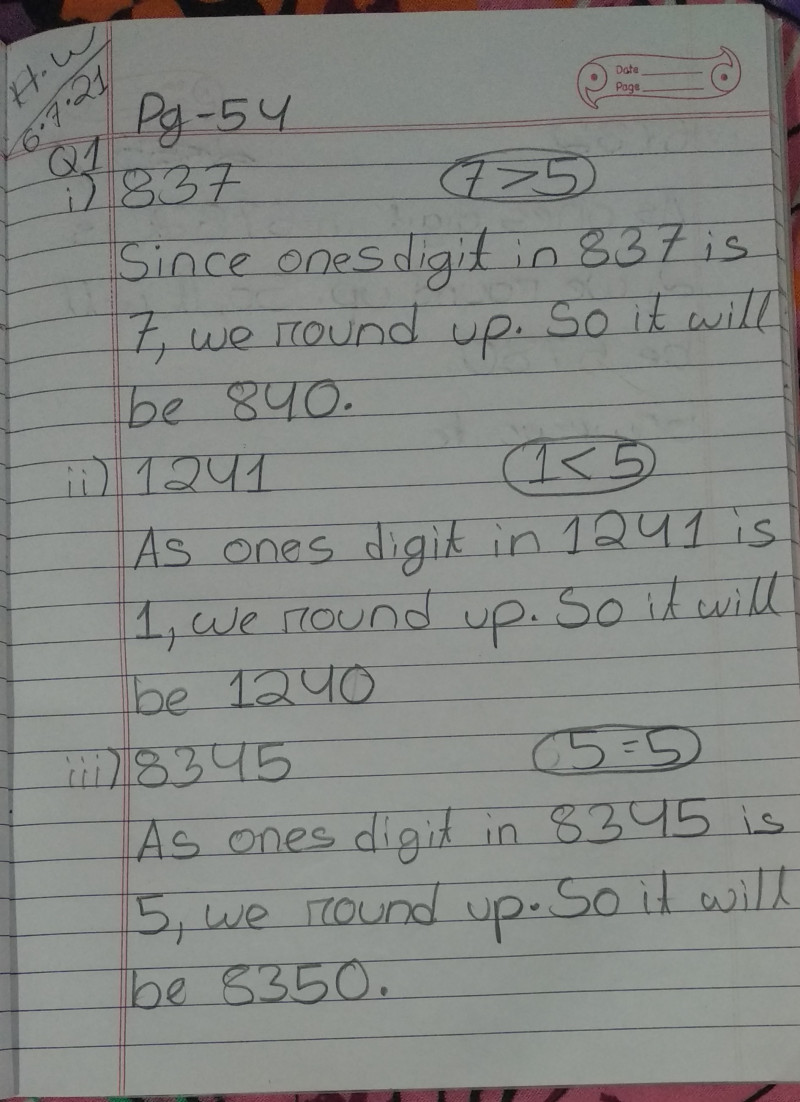 H.W
6.7.21
Date
Page
Pg-54
Q1
i) 837 7>5
Since ones digit in 837 is
7, we round up. So it will
be 840.
ii) 1241 1<5
As ones digit in 1241 is
1, we round up. So it will
be 1240
iii) 8345 5=5
As ones digit in 8345 is
5, we round up. So it will
be 8350.